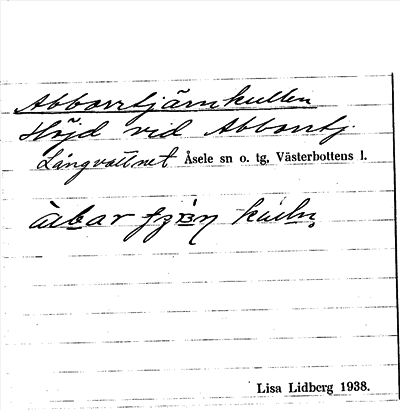 Abborrtjärnkullen
Höjd vid Abborrtj.
Långvattnet Åsele sn o. tg, Västerbottens l.
Lisa Lidberg 1938.